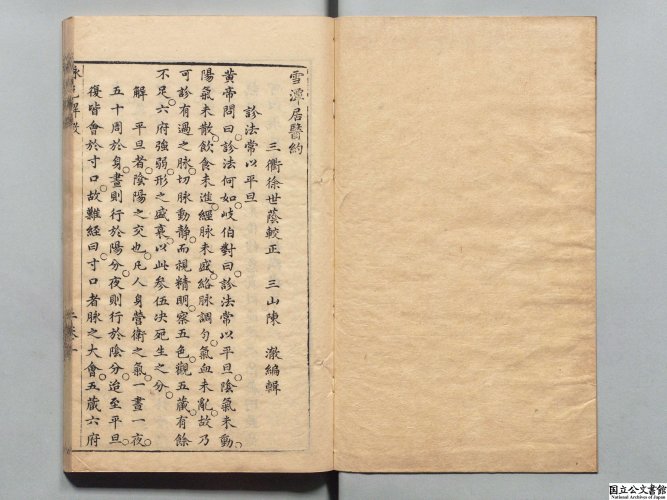 雪潭居醫約
三衢徐世蔭較正　三山陳　澈編輯
診法常以平旦
黃帝問曰診法何如岐伯對曰診法常以平旦陰氣未動
陽氣未散飲食未進經脉未盛絡脉調勻氣血未亂故乃
可診有過之脉切脉動靜而視精明察五色觀五藏有餘
不足六府強弱形之盛衰以此參伍决死生之分
解　平旦者陰陽之交也凡人身營衛之氣一晝一夜
五十周於身晝則行於陽分夜則行於陰分迨至平旦
復皆會於寸口故難經曰寸口者脉之大會五藏六府
國立公文書館
National Archives of Japan